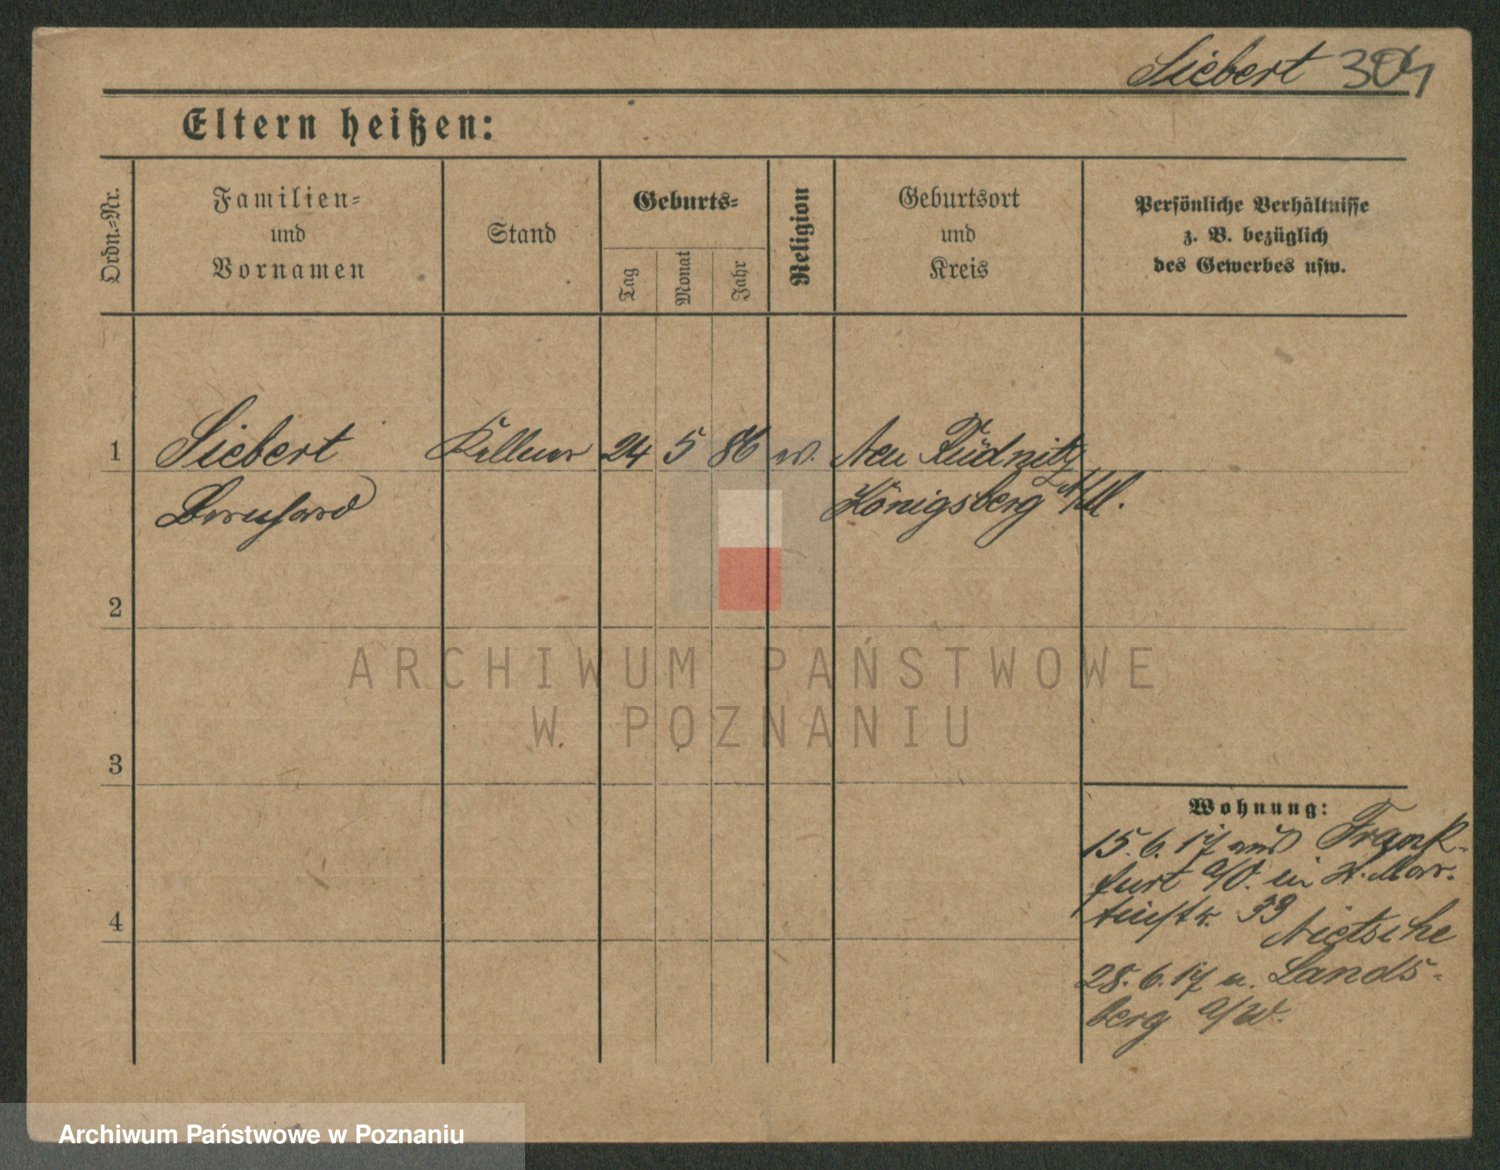 Siebert 304
Eltern heißen:
Ordn.-Nr.
Familien-
und
Vornamen
Stand
Geburts-
Tag
Monat
Jahr
Religion
Geburtsort
und
Kreis
Persönliche Verhältnisse
z. B. bezüglich
des Gewerbes usw.
1
Siebert Kellner 24 5 86 ev. Neu Rüdnitz
Bernhard Königsberg N/M.
2
ARCHIWUM PAŃSTWOWE
W POZNANIU
3
Wohnung:
15.6.17 aus Frank-
furt a/O. in St. Mar-
tinstr. 33
4
Nietsche
28.6.17 n. Lands-
berg a/W.
Archiwum Państwowe w Poznaniu